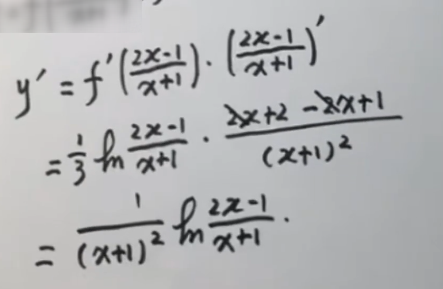 y' = f'(\frac{2x-1}{x+1}) \cdot (\frac{2x-1}{x+1})'
= \frac{1}{3} ln \frac{2x-1}{x+1} \cdot \frac{2x+2-2x+1}{(x+1)^2}
= \frac{1}{(x+1)^2} ln \frac{2x-1}{x+1}.